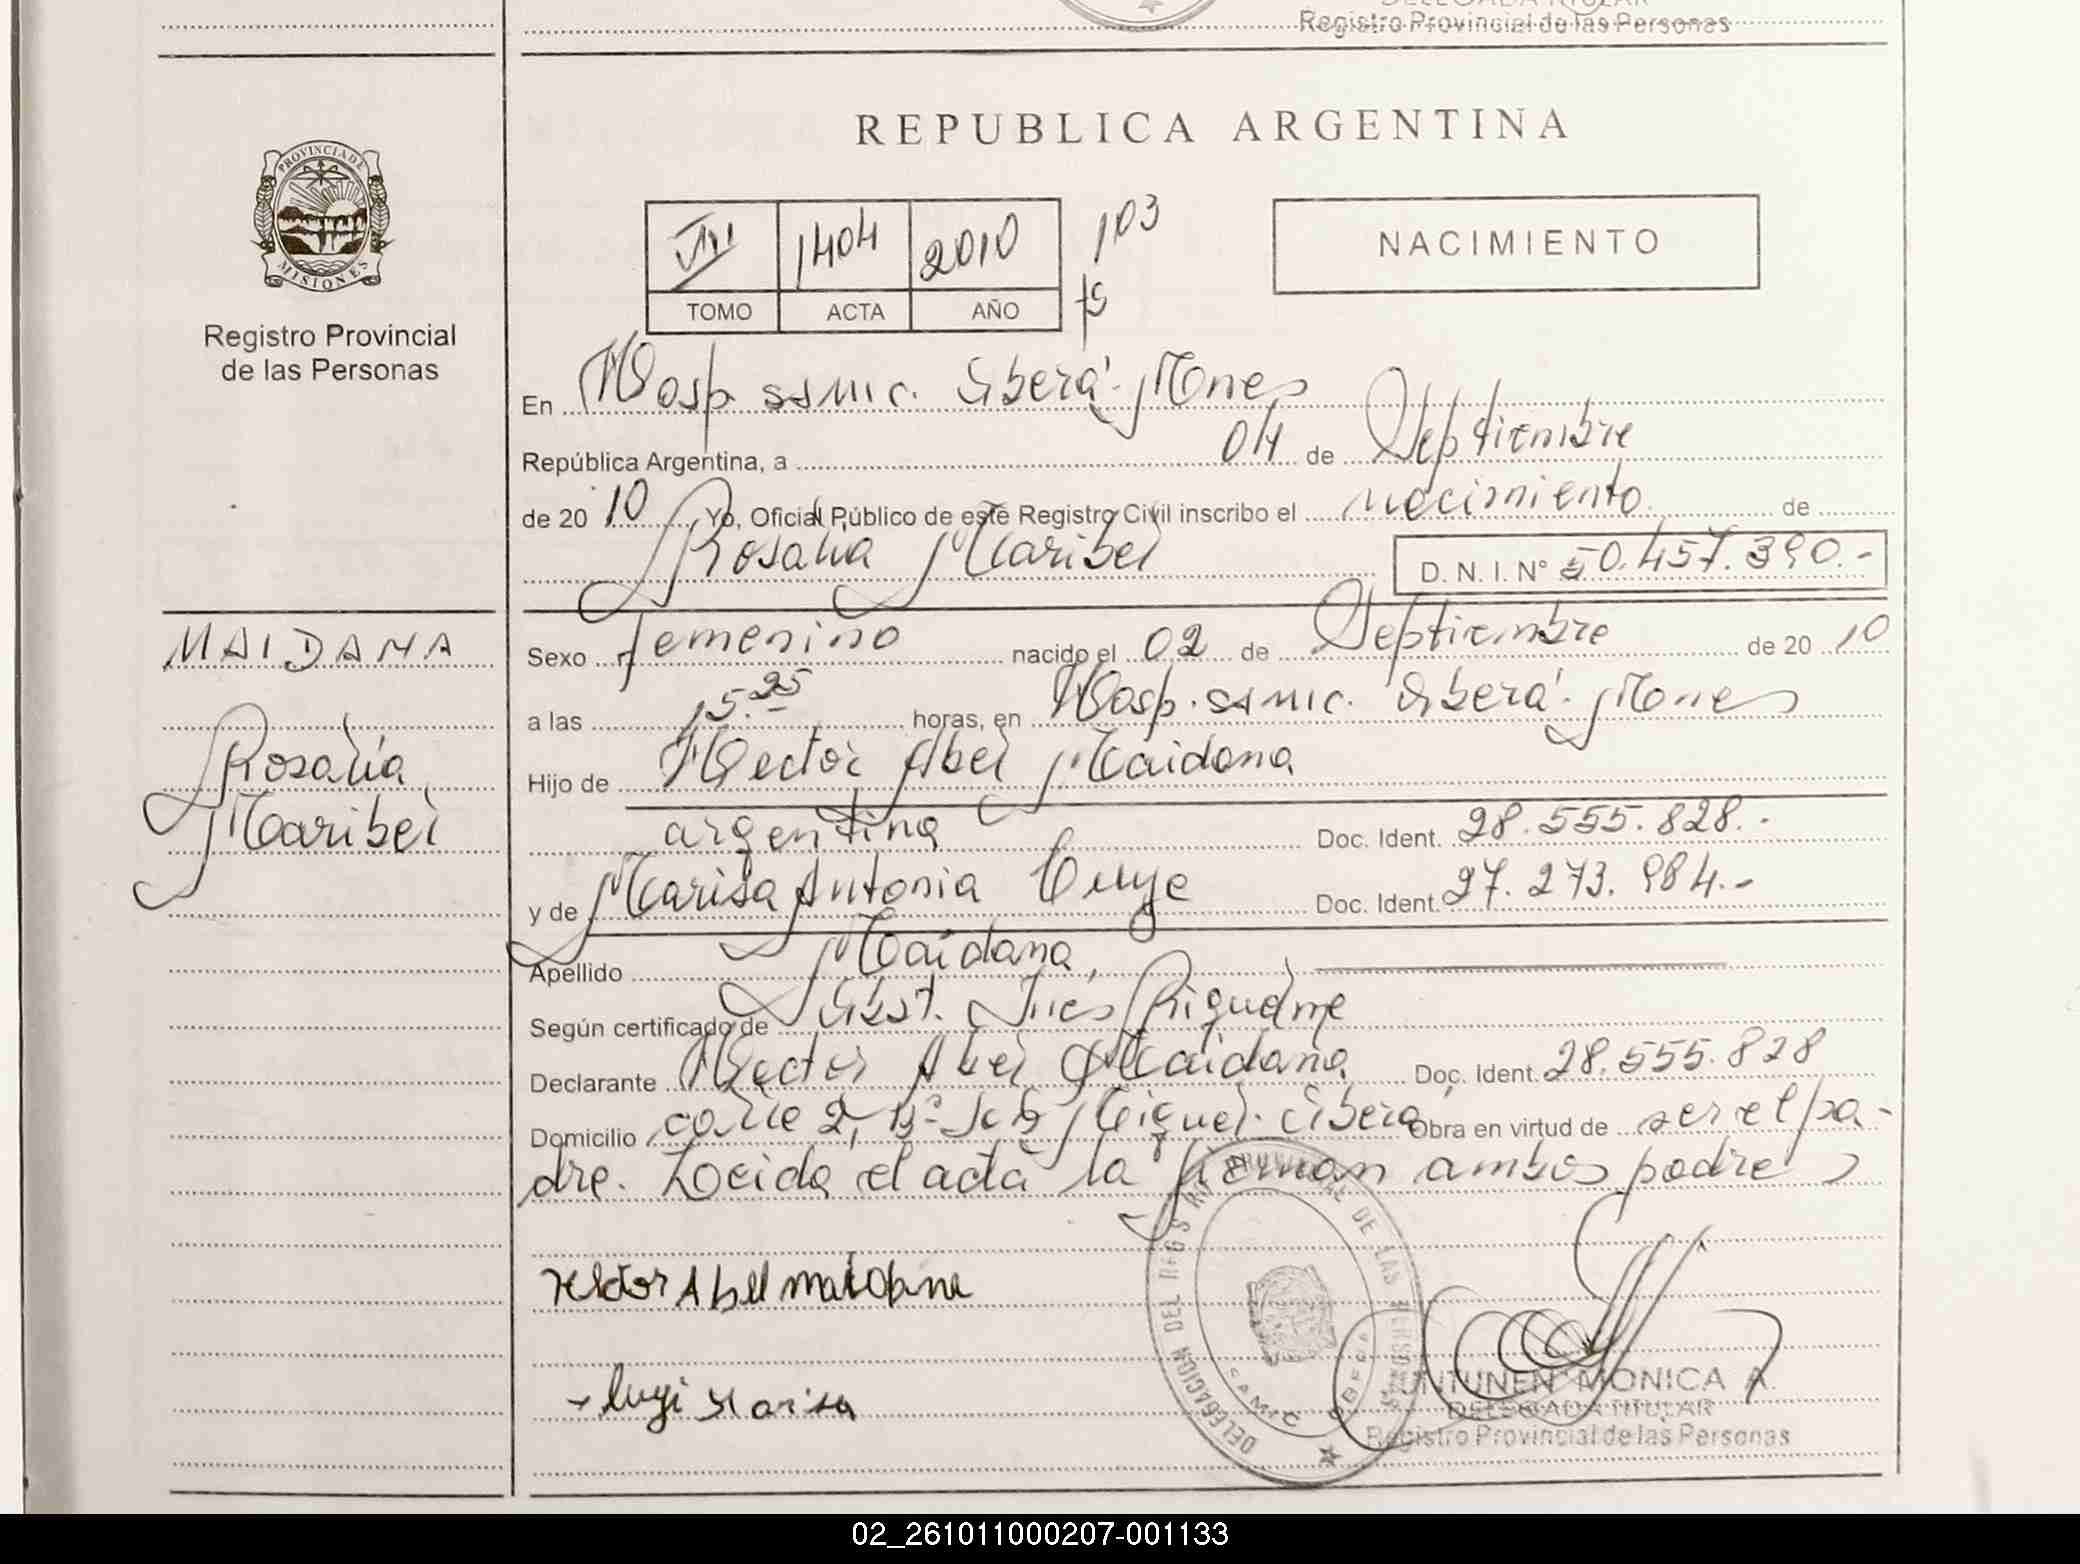 DELEGADA TITULAR
Registro Provincial de las Personas
REPUBLICA ARGENTINA
PROVINCIA DE
MISIONES
Registro Provincial
de las Personas
1404 2010 103
TOMO ACTA AÑO fs
NACIMIENTO
En Hosp. ssmic. Oberá. Mnes
República Argentina, a 04 de Septiembre
de 2010 Yo, Oficial Público de este Registro Civil inscribo el nacimiento de
Rosalia Maribel D.N.I.Nº 50.457.390.-
MAIDANA
Rosalia
Maribel
Sexo femenino nacido el 02 de Septiembre de 2010
a las 15.25 horas, en Hosp. ssmic. Oberá. Mones
Hijo de Hector Abel Maidana
argentina Doc. Ident. 28.555.828.-
y de Marisa Antonia Doc. Ident. 27.273.984.-
Apellido Maidana,
Según certificado de Obst. Ines Riquelme
Declarante Hector Abel Maidana Doc. Ident. 28.555.828
Domicilio calle 2, Bº Sn Miguel. Oberá Obra en virtud de ser el pa-
dre. Leida el acta la firman ambos padres
Hector Abel maidana
Marisa
DELEGACION DEL REGISTRO PROVINCIAL DE LAS PERSONAS
SAMIC OBERA
UNTUNEN MONICA A.
DELEGADA TITULAR
Registro Provincial de las Personas
02_261011000207-001133